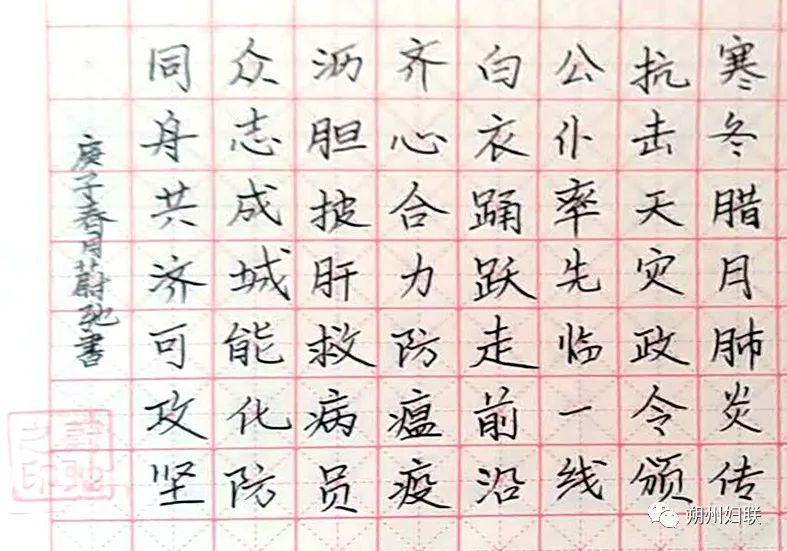 寒冬腊月肺炎传
抗击天灾政令颁
公仆率先临一线
白衣踊跃走前沿
齐心合力防瘟疫
沥胆披肝救病员
众志成城能化防
同舟共济可攻坚
庚子春月蔚驰书
之印
朔州妇联